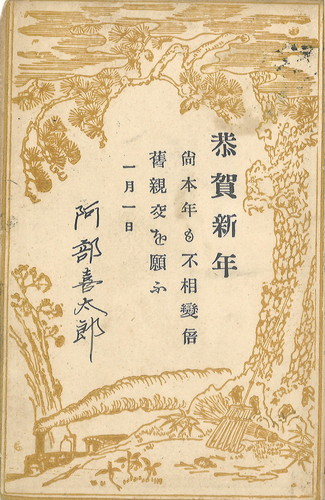 恭賀新年
尚本年も不相變倍
舊親交を願ふ
一月一日
阿部喜太郎